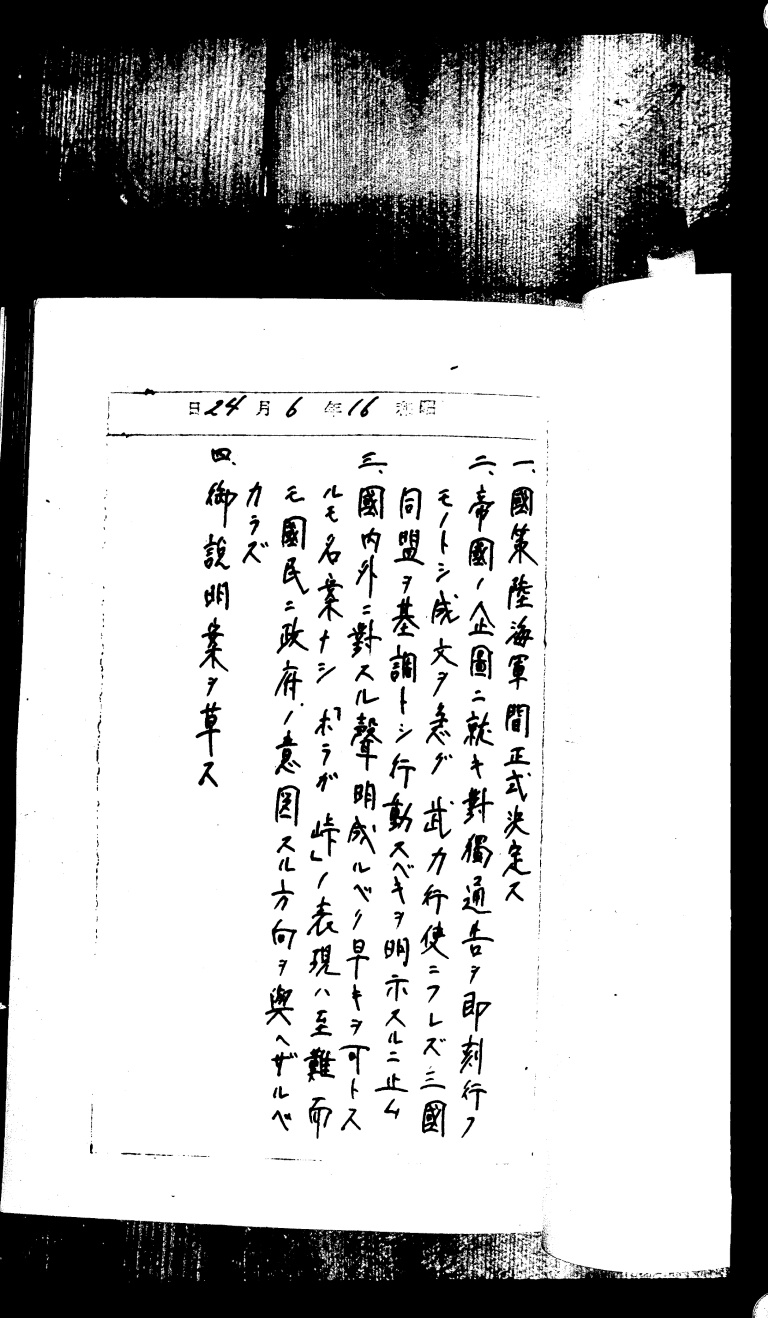 昭和16年6月24日
一、國策陸海軍間正式決定ス
二、帝國ノ企圖ニ就キ對獨通告ヲ即刻行フ
モノトシ成文ヲ急グ武力行使ニフレズ三國
同盟ヲ基調トシ行動スベキヲ明示スルニ止ム
三、國内外ニ對スル聲明成ルベク早キヲ可トス
ルモ名案ナシ「ボラガ峠」ノ表現ハ至難而
モ國民ニ政府ノ意図スル方向ヲ與ヘザルベ
カラズ
四、御説明案ヲ草ス